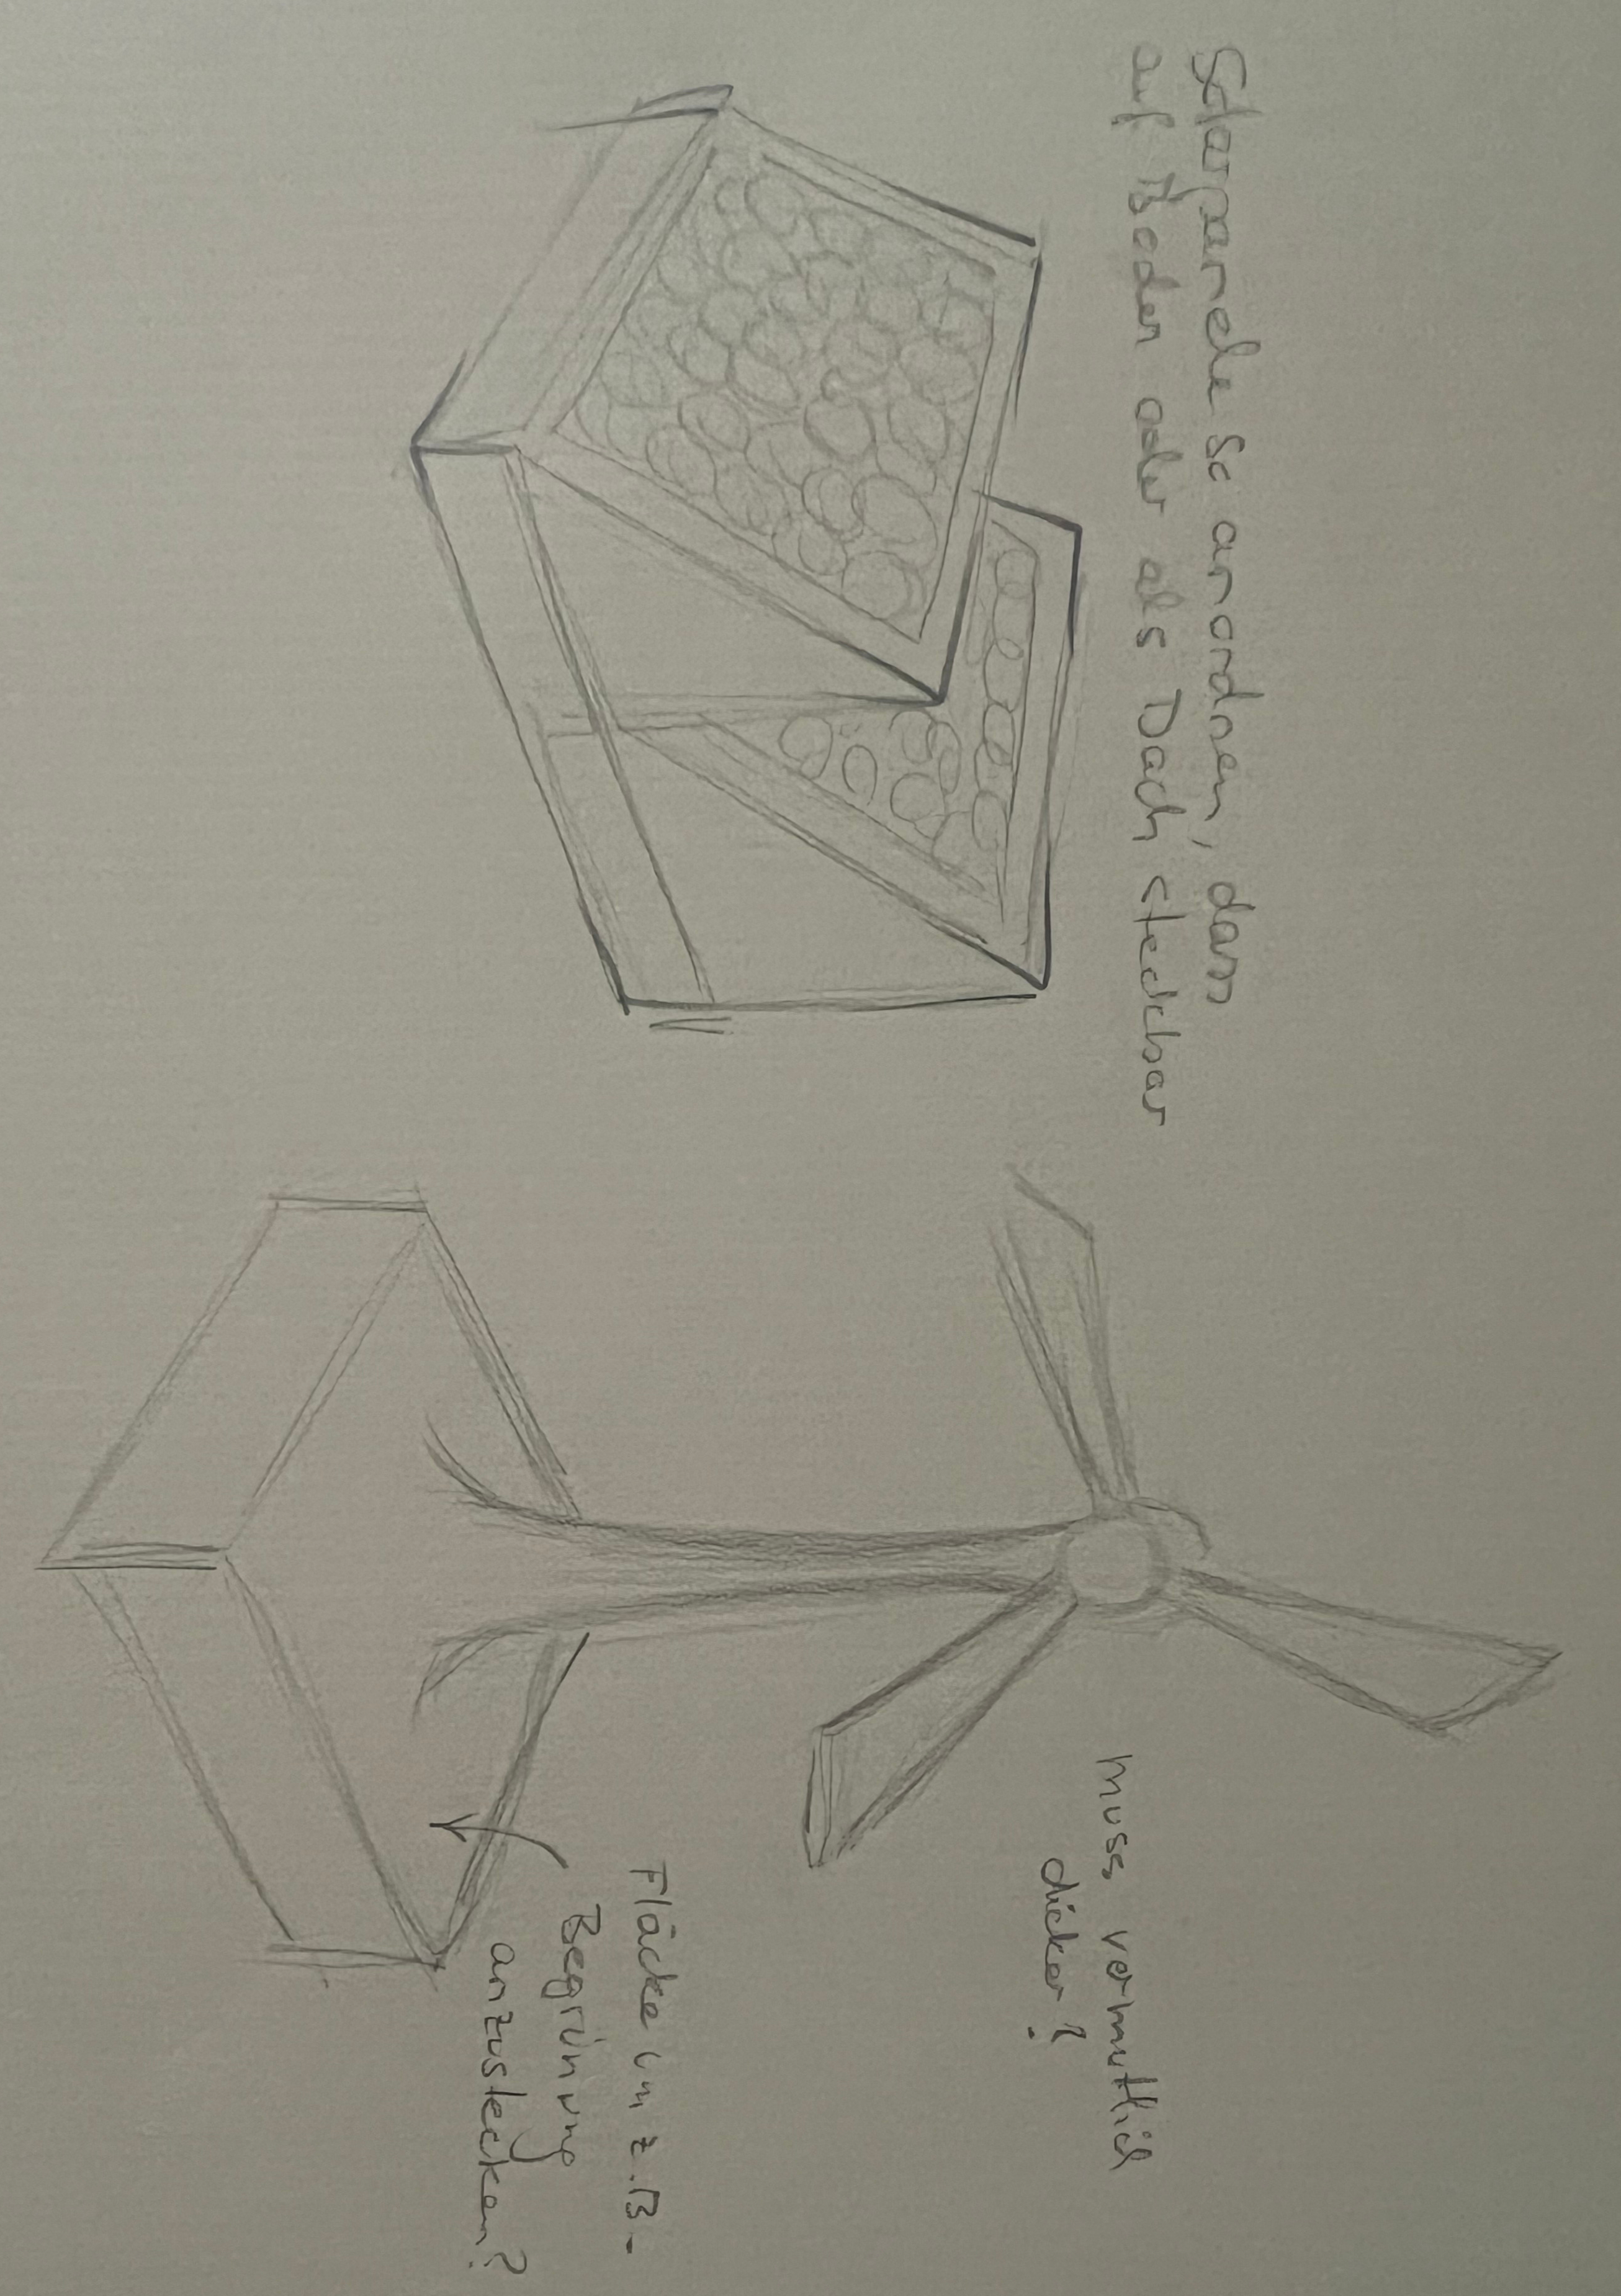 Solarpanele so anordnen, dass
auf Boden oder als Dach steckbar
muss vermutlich
dicker?
Fläche um z.B.
Begrünung
anzustecken?